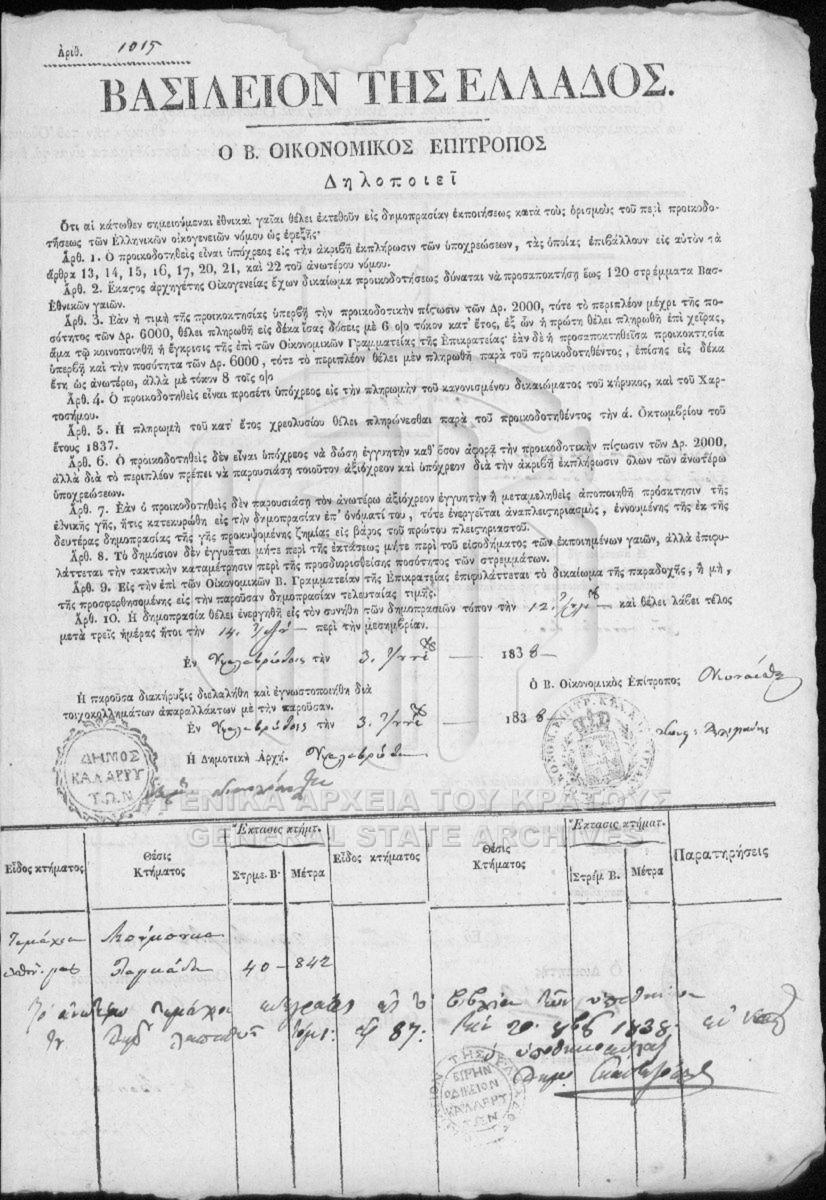 Ἀριθ. 1015
ΒΑΣΙΛΕΙΟΝ ΤΗΣ ΕΛΛΑΔΟΣ.
Ο Β. ΟΙΚΟΝΟΜΙΚΟΣ ΕΠΙΤΡΟΠΟΣ
Δηλοποιεῖ
Ὅτι αἱ κάτωθεν σημειούμεναι ἐθνικαὶ γαῖαι θέλει ἐκτεθοῦν εἰς δημοπρασίαν ἐκποιήσεως κατὰ τοὺς ὁρισμοὺς τοῦ περὶ προικοδο-
τήσεως τῶν Ἑλληνικῶν οἰκογενειῶν νόμου ὡς ἐφεξῆς·
Ἀρθ. 1. Ὁ προικοδοτηθεὶς εἶναι ὑπόχρεος εἰς τὴν ἀκριβῆ ἐκπλήρωσιν τῶν ὑποχρεώσεων, τὰς ὁποίας ἐπιβάλλουν εἰς αὐτὸν τὰ
ἄρθρα 13, 14, 15, 16, 17, 20, 21, καὶ 22 τοῦ ἀνωτέρου νόμου.
Ἀρθ. 2. Ἕκαστος ἀρχηγέτης Οἰκογενείας ἔχων δικαίωμα προικοδοτήσεως δύναται νὰ προσαποκτήσῃ ἕως 120 στρέμματα Βασ-
Ἐθνικῶν γαιῶν.
Ἀρθ. 3. Ἐὰν ἡ τιμὴ τῆς προικοκτησίας ὑπερβῇ τὴν προικοδοτικὴν πίστωσιν τῶν Δρ. 2000, τότε τὸ περιπλέον μέχρι τῆς πο-
σότητος τῶν Δρ. 6000, θέλει πληρωθῆ εἰς δέκα ἴσας δόσεις μὲ 6 ο)ο τόκον κατ' ἔτος, ἐξ ὧν ἡ πρώτη θέλει πληρωθῆ ἐπὶ χεῖρας,
ἅμα τῷ κοινοποιηθῇ ἡ ἔγκρισις τῆς ἐπὶ τῶν Οἰκονομικῶν Γραμματείας τῆς Ἐπικρατείας· ἐὰν δὲ ἡ προσαποκτηθεῖσα προικοκτησία
ὑπερβῇ καὶ τὴν ποσότητα τῶν Δρ. 6000, τότε τὸ περιπλέον θέλει μὲν πληρωθῆ παρὰ τοῦ προικοδοτηθέντος, ἐπίσης εἰς δέκα
ἔτη ὡς ἀνωτέρω, ἀλλὰ μὲ τόκον 8 τοῖς ο)ο
Ἀρθ. 4. Ὁ προικοδοτηθεὶς εἶναι προσέτι ὑπόχρεος εἰς τὴν πληρωμὴν τοῦ κανονισμένου δικαιώματος τοῦ κήρυκος, καὶ τοῦ Χαρ-
τοσήμου.
Ἀρθ. 5. Ἡ πληρωμὴ τοῦ κατ' ἔτος χρεολυσίου θέλει πληρώνεσθαι παρὰ τοῦ προικοδοτηθέντος τὴν ά. Ὀκτωμβρίου τοῦ
ἔτους 1837.
Ἀρθ. 6. Ὁ προικοδοτηθεὶς δὲν εἶναι ὑπόχρεος νὰ δώσῃ ἐγγυητὴν καθ' ὅσον ἀφορᾷ τὴν προικοδοτικὴν πίσωσιν τῶν Δρ. 2000,
ἀλλὰ διὰ τὸ περιπλέον πρέπει νὰ παρουσιάσῃ τοιοῦτον ἀξιόχρεον καὶ ὑπόχρεον διὰ τὴν ἀκριβῆ ἐκπλήρωσιν ὅλων τῶν ἀνωτέρω
ὑποχρεώσεων.
Ἀρθ. 7. Ἐὰν ὁ προικοδοτηθεὶς δὲν παρουσιάσῃ τὸν ἀνωτέρω ἀξιόχρεον ἐγγυητὴν ἢ μεταμεληθεὶς ἀποποιηθῇ πρόσκτησιν τῆς
ἐθνικῆς γῆς, ἥτις κατεκυρώθη εἰς τὴν δημοπρασίαν ἐπ' ὀνόματί του, τότε ἐνεργεῖται ἀναπλειστηριασμὸς, ἐννουμένης τῆς ἐκ τῆς
δευτέρας δημοπρασίας τῆς γῆς προκυψομένης ζημίας εἰς βάρος τοῦ πρώτου πλειστηριαστοῦ.
Ἀρθ. 8. Τὸ δημόσιον δὲν ἐγγυᾶται μήτε περὶ τῆς ἐκτάσεως μήτε περὶ τοῦ εἰσοδήματος τῶν ἐκποιημένων γαιῶν, ἀλλὰ ἐπιφυ-
λάττεται τὴν τακτικὴν καταμέτρησιν περὶ τῆς προσδιορισθείσης ποσότητος τῶν στρεμμάτων.
Ἀρθ. 9. Εἰς τὴν ἐπὶ τῶν Οἰκονομικῶν Β. Γραμματείαν τῆς Ἐπικρατείας ἐπιφυλάττεται τὸ δικαίωμα τῆς παραδοχῆς, ἢ μὴ,
τῆς προσφερθησομένης εἰς τὴν παροῦσαν δημοπρασίαν τελευταίας τιμῆς.
Ἀρθ. 10. Ἡ δημοπρασία θέλει ἐνεργηθῆ εἰς τὸν συνήθη τῶν δημοπρασιῶν τόπον τὴν 12. καὶ θέλει λάβει τέλος
μετὰ τρεῖς ἡμέρας ἤτοι τὴν 14. περὶ τὴν μεσημβρίαν.
Ἐν τὴν 3. 1838
Ὁ Β. Οἰκονομικὸς Ἐπίτροπος
Ἡ παροῦσα διακήρυξις διελαλήθη καὶ ἐγνωστοποιήθη διὰ
τοιχοκολλημάτων ἀπαραλλάκτων μὲ τὴν παροῦσαν.
Ἐν τὴν 3. 1838
Ἡ Δημοτικὴ Ἀρχὴ.
ΔΗΜΟΣ
ΚΑΛΑΡΡΥ
ΤΩΝ
ΓΕΝΙΚΑ ΑΡΧΕΙΑ ΤΟΥ ΚΡΑΤΟΥΣ
GENERAL STATE ARCHIVES
Εἶδος κτήματος Θέσις Κτήματος Ἔκτασις κτήματ. Στρμε. Β. Μέτρα Εἶδος κτήματος Θέσις Κτήματος Ἔκτασις κτήματ. Στρέμ Β. Μέτρα Παρατηρήσεις
40 - 842
87: 20. 1838
ΕΙΡΗΝ
ΟΔΙΚΕΙΟΝ
ΚΑΛΑΡΡΥ
ΤΩΝ